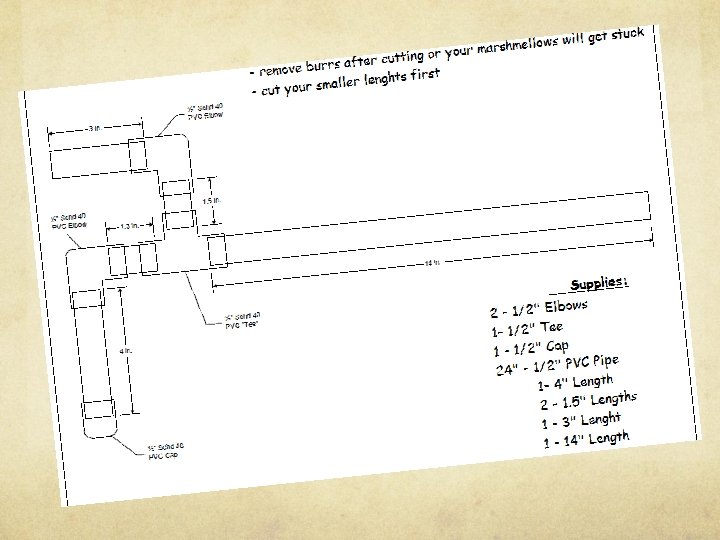 - remove burrs after cutting or your marshmellows will get stuck
- cut your smaller lenghts first
½" Schd 40
PVC Elbow
3 in.
1.5 in.
½" Schd 40
PVC Elbow
1.5 in.
14 in.
½" Schd 40
PVC "Tee"
4 in.
½" Schd 40
PVC Cap
Supplies:
2 - 1/2" Elbows
1- 1/2" Tee
1 - 1/2" Cap
24" - 1/2" PVC Pipe
1- 4" Length
2 - 1.5" Lengths
1 - 3" Lenght
1 - 14" Length